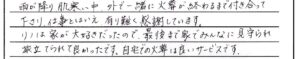 雨が降り肌寒い中、外で一緒に火葬が終わるまで付き合って
下さり、仕事とはいえ有り難く感謝しています。
リリは家が大好きだったので、最後まで家でみんなに見守られ
旅立てられて良かったです。自宅での火葬は良いサービスです。